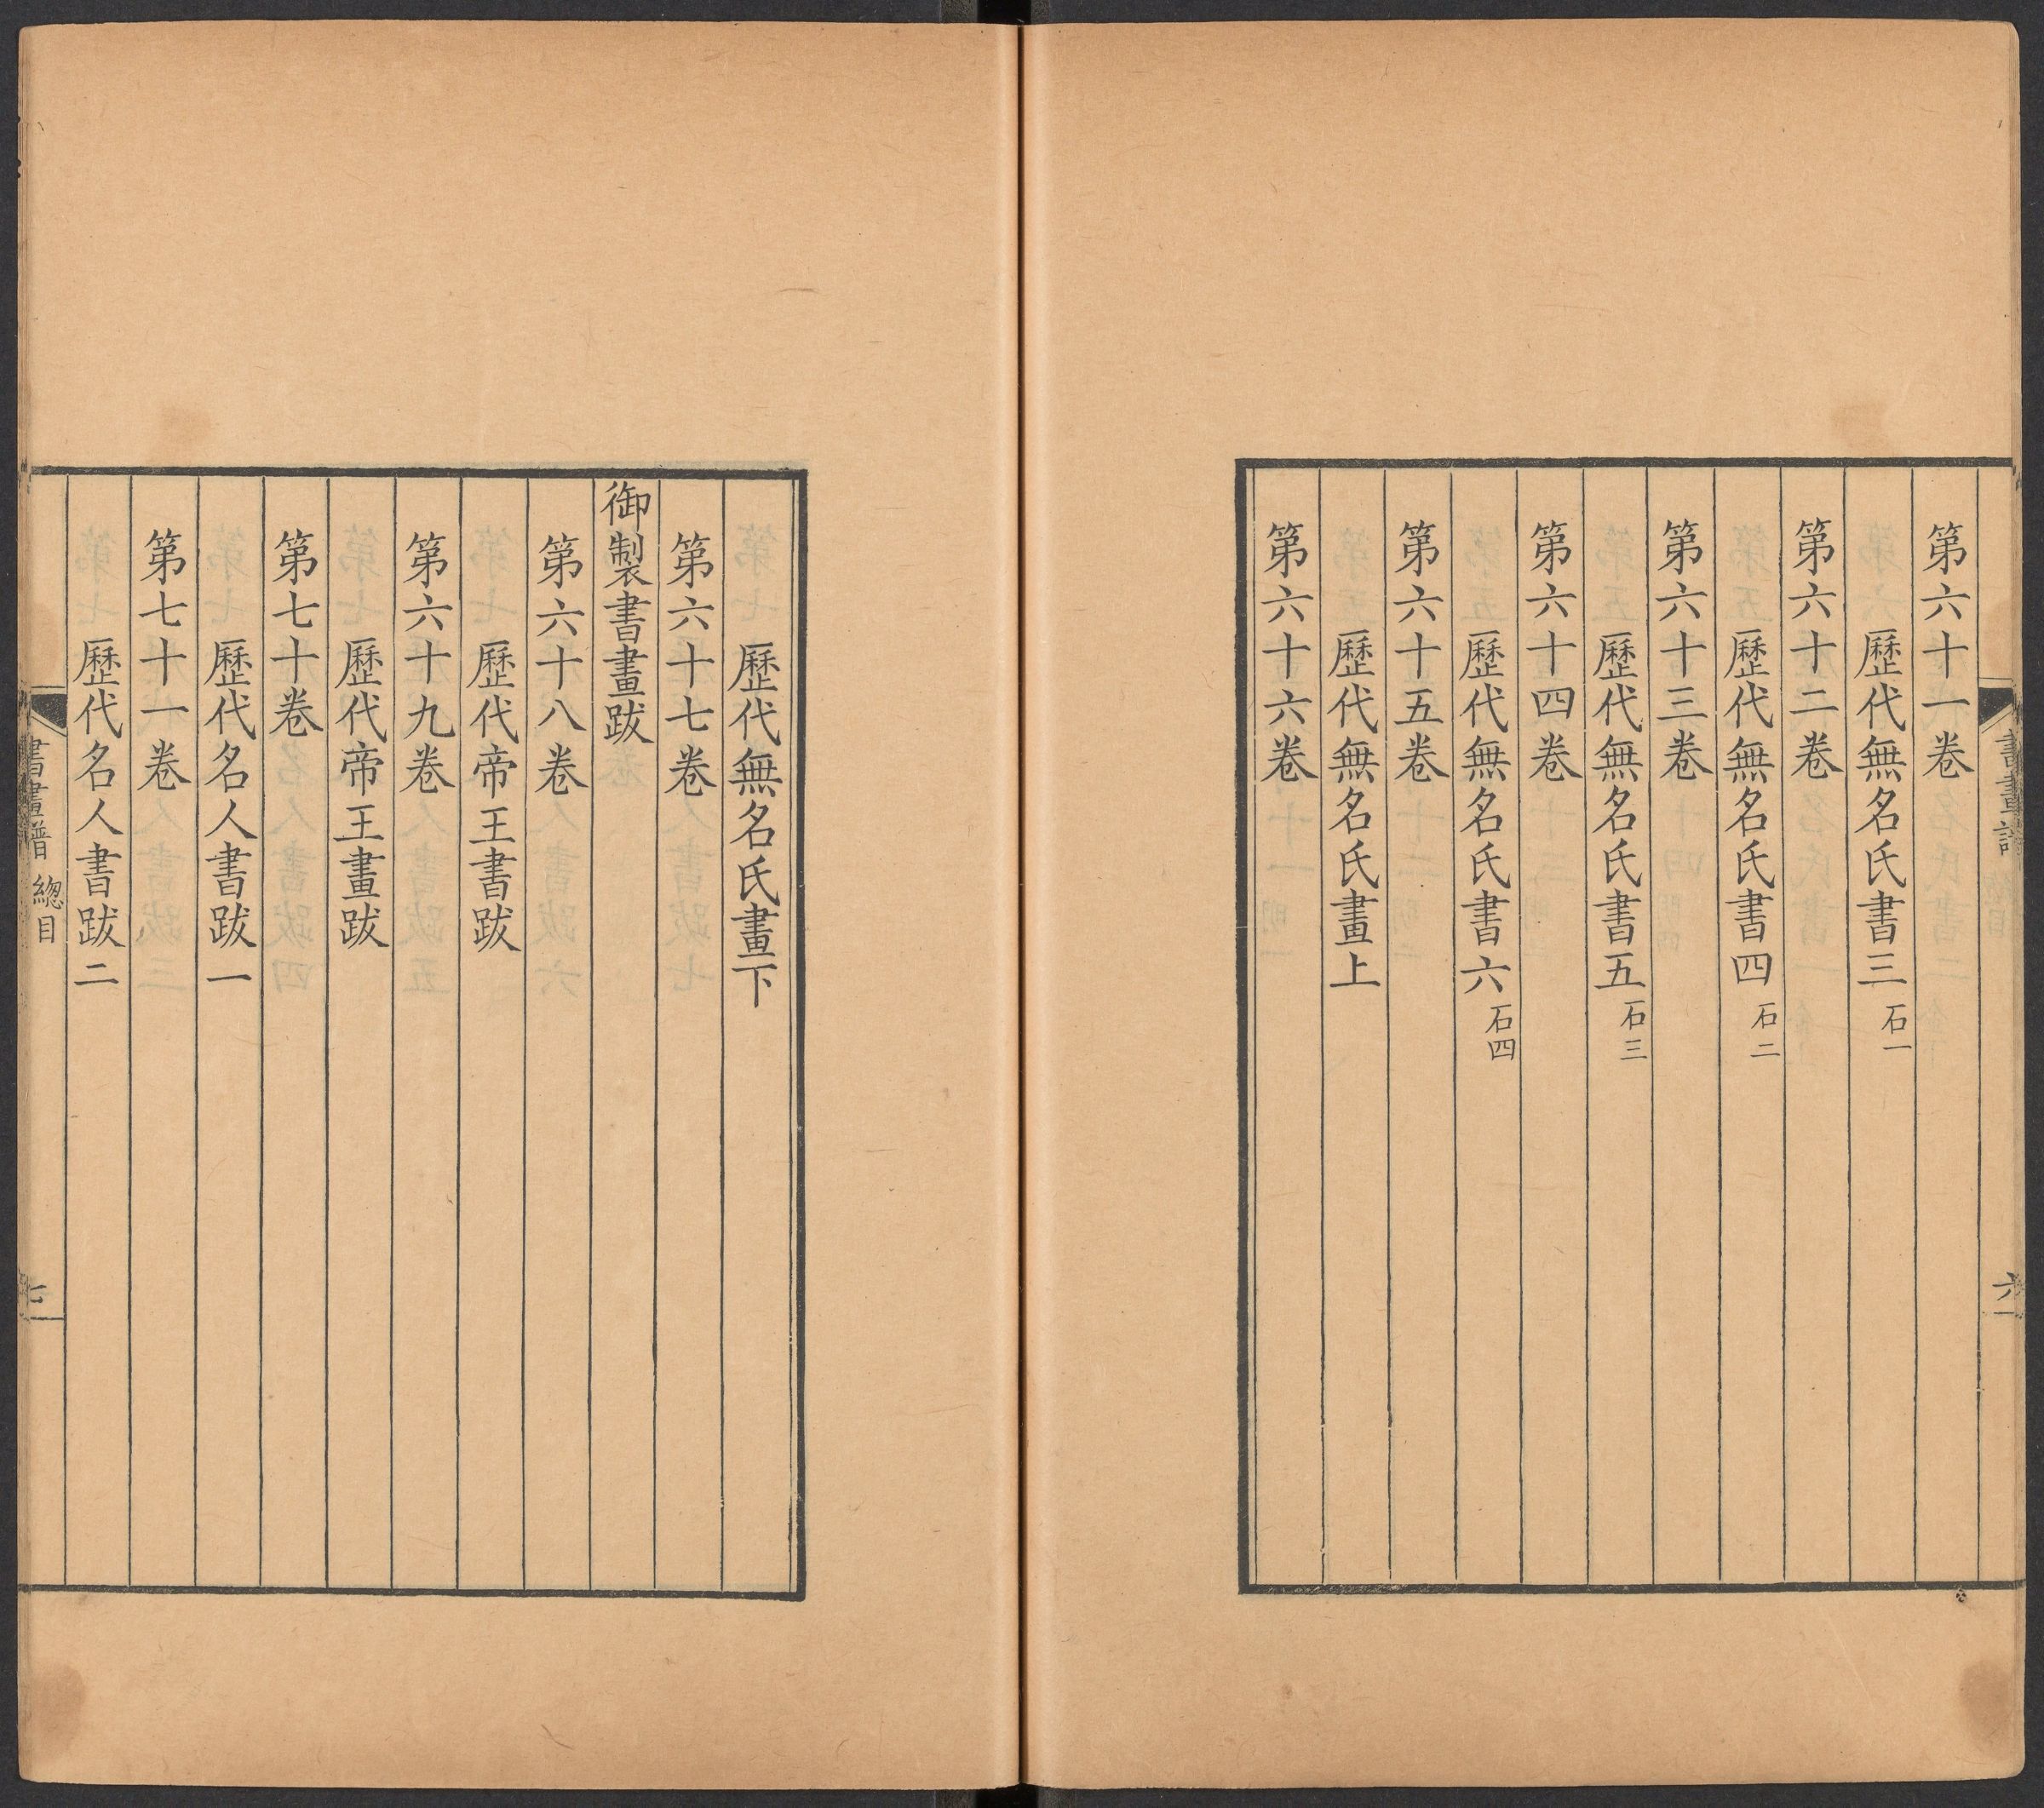 書畫譜
六
第六十一卷
歷代無名氏書三 石一
第六十二卷
歷代無名氏書四 石二
第六十三卷
歷代無名氏書五 石三
第六十四卷
歷代無名氏書六 石四
第六十五卷
歷代無名氏畫上
第六十六卷
歷代無名氏畫下
第六十七卷
御製書畫跋
第六十八卷
歷代帝王書跋
第六十九卷
歷代帝王畫跋
第七十卷
歷代名人書跋一
第七十一卷
歷代名人書跋二
書畫譜 總目
七